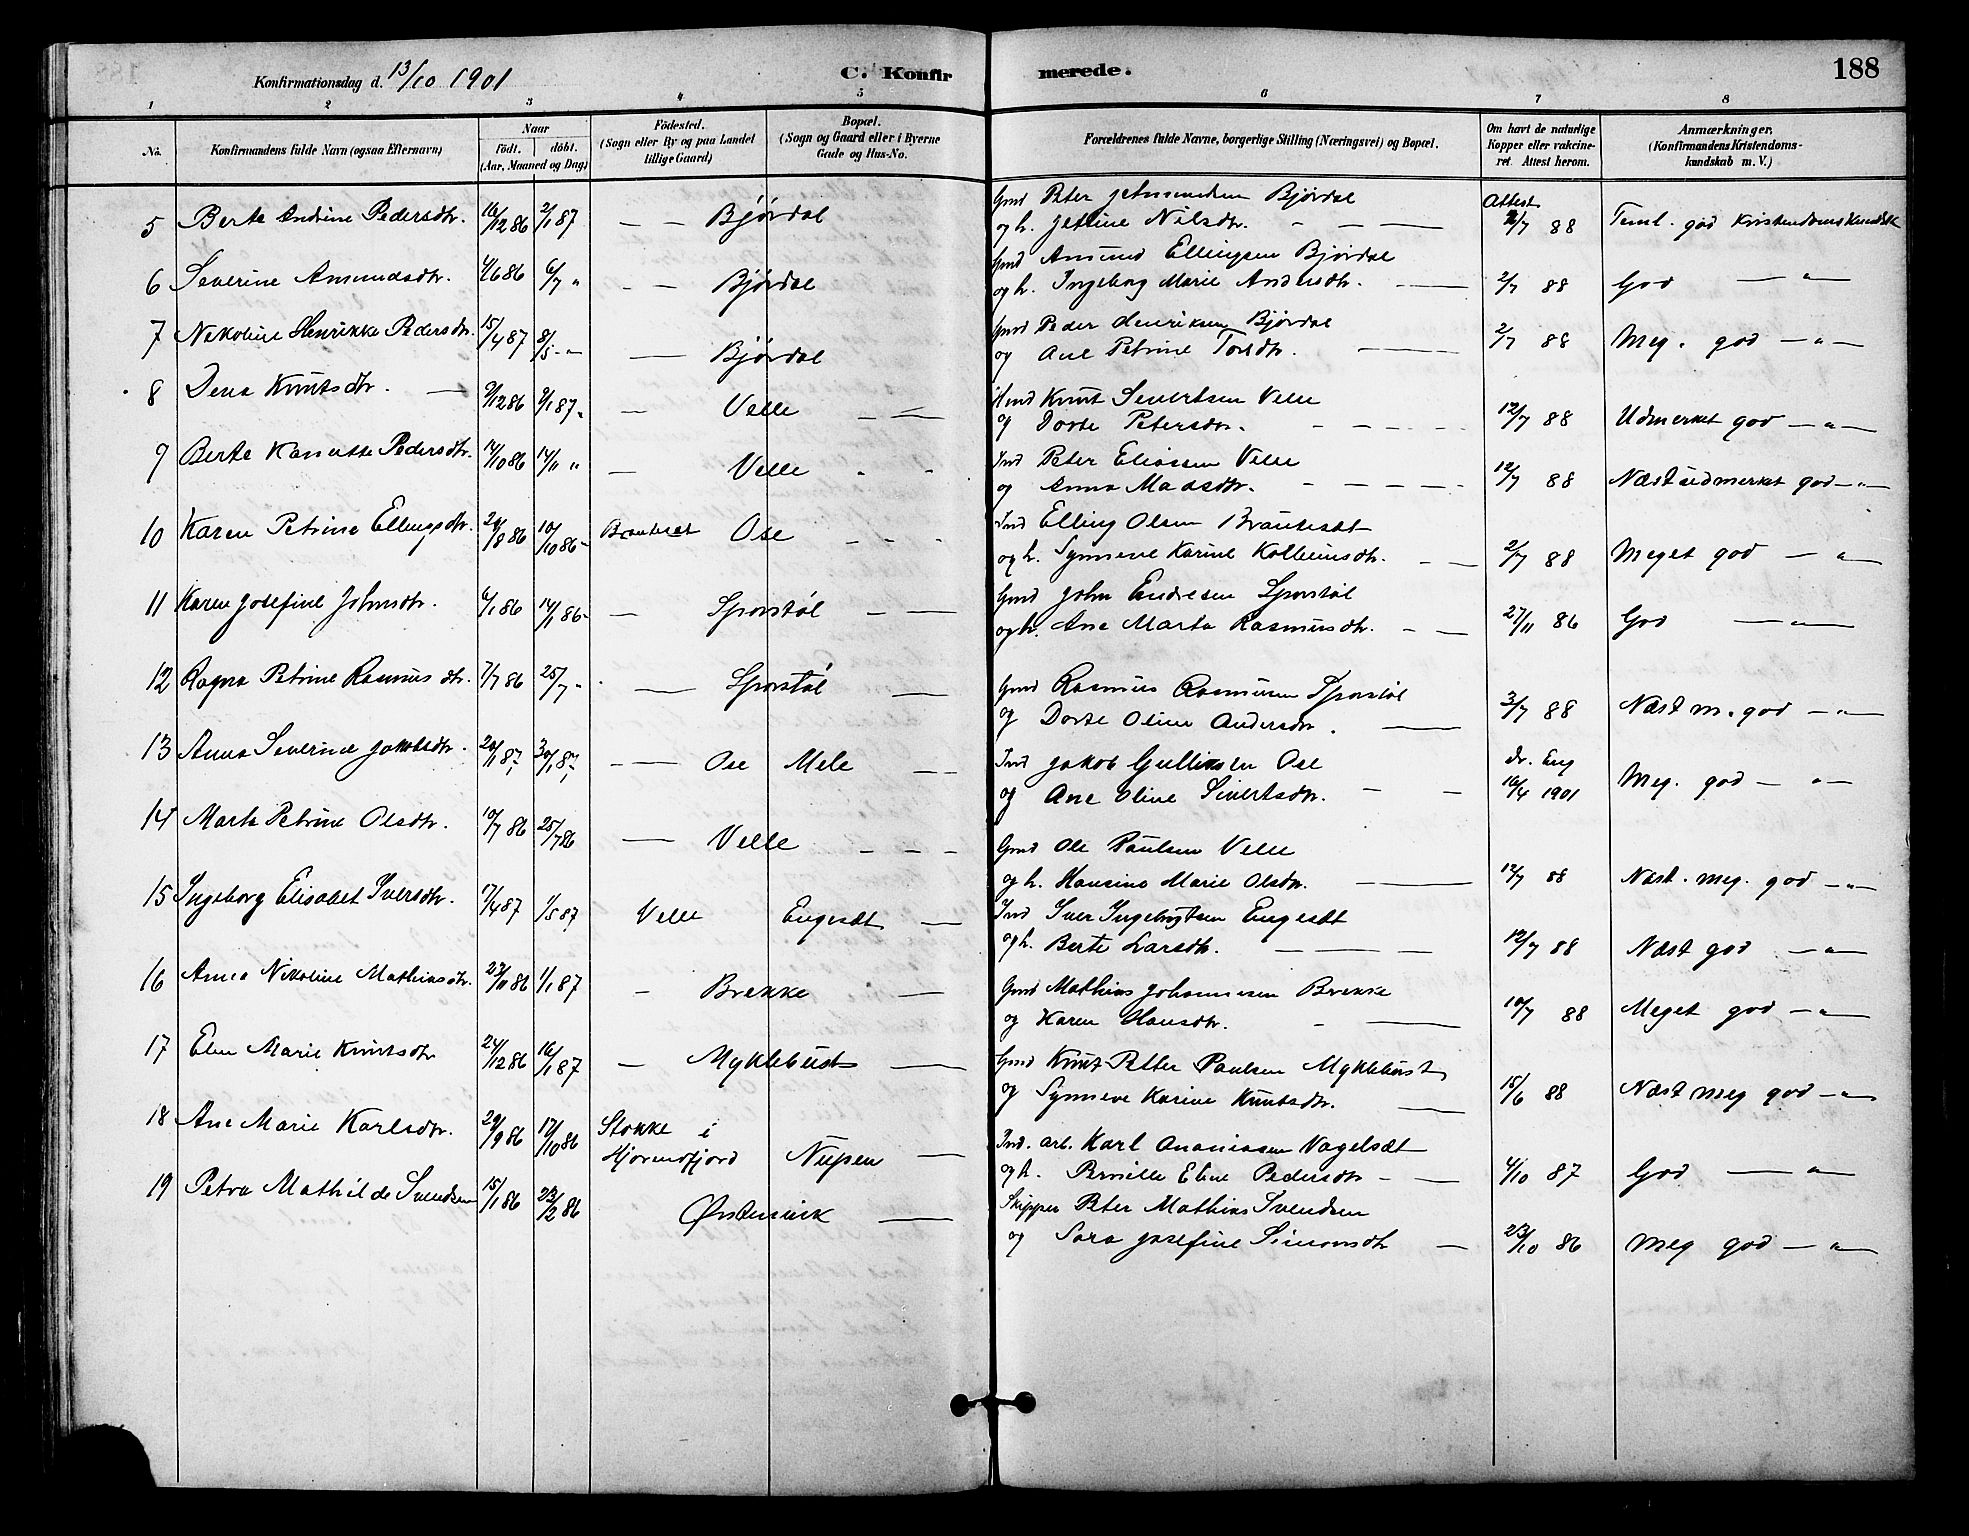 Konfirmationsdag d. 13/10 1901
C. Konfir merede.
188
1 2 3 4 5 6 7 8
No. Konfirmandens fulde Navn (ogsaa Efternavn) Naar födt. döbt. (Aar, Maaned og Dag) Födested. (Sogn eller By og paa Landet tillige Gaard) Bopæl. (Sogn og Gaard eller i Byerne Gade og Hus-No. Forældrenes fulde Navne, borgerlige Stilling (Næringsvei) og Bopæl. Om havt de naturlige Kopper eller vakcineret. Attest herom. Anmærkninger. (Konfirmandens Kristendomskundskab m. V.)
5 Berte Andrine Pedersdtr. 16/12 86 2/1 87 — — Bjørdal Gmd Peter Amundsen Bjørdal Attest
og h. Jettine Nilsdtr. - — — 2/7 88 Teml. god Kristendomskundsk
6 Severine Amundsdtr. 4/6 86 6/7 " — — Bjørdal Gmd Amund Ellingsen Bjørdal
og h. Ingeborg Marie Andersdtr. — 2/7 88 God — " —
7 Nikoline Henrikke Pedersdtr. 15/4 87 8/5 " — Bjørdal Gmd Peder Henriksen Bjørdal
og Ane Petrine Torsdtr. — 2/7 88 Meg. god — " —
8 Dena Knutsdtr. — 9/12 86 9/1 87 — Velle — — Knut Severtsen Velle
og Dorte Petersdtr. — — 12/7 88 Udmerket god — " —
9 Berte Kanutte Pedersdtr. 14/10 86 14/11 " — Velle - - Ind Peter Eliassen Velle
og Anna Madsdtr. — — 12/7 88 Næst udmerket god — " —
10 Karen Petrine Ellingsdtr. 24/8 86 10/10 86 Brautesæt Ose - - - Ind Elling Olsen Brautesæt
og h. Synneve Karine Kolbeinsdtr. — — 2/7 88 Meget god — " —
11 Karen Josefine Johnsdtr. 6/1 86 14/1 86 — Sporstøl — — Gmd John Endresen Sporstøl
og h. Ane Marta Rasmusdtr. — — 27/11 86 God — " —
12 Ragna Petrine Rasmusdtr. 7/7 86 25/7 " — Sporstøl — Gmd Rasmus Rasmusen Sporstøl
og Dorte Oline Andersdtr. — 3/7 88 Næst m. god — " —
13 Anna Severine Jakobsdtr. 20/1 87 30/1 87 — — Ose Mele — Ind Jakob Gulliksen Ose dr. Eng
og Ane Oline Sivertsdtr. — — 16/4 1901 Meg. god — " —
14 Marta Petrine Olsdtr. 10/7 86 25/7 86 — Velle — — — Gmd Ole Paulsen Velle
og h. Hansine Marie Olsdtr. — 12/7 88 Næst. meg. god — " —
15 Ingeborg Elisabet Iversdtr. 17/4 87 1/5 87 Velle Engesæt — Ind Iver Ingebrigtsen Engesæt
og h. Berte Larsdtr. — — — 12/7 88 Næst god — " —
16 Anna Nikoline Mathiasdtr. 23/11 86 1/1 87 - Brekke — Gmd Mathias Johannesen Brekke
og Karen Hansdtr. - — 10/7 88 Meget god — " —
17 Elen Marie Knutsdtr 24/12 86 16/1 87 — Myklebust — Gmd Knut Petter Paulsen Myklebust
og Synneve Karine Knutsdtr. — 15/6 88 Næst meg god — " —
18 Ane Marie Karlsdtr. 24/9 86 17/10 86 Stokke i Hjørendfjord Nupen — Ind. arb. Karl Ananiassen Vagelsæt
og h. Pernille Eline Pedersdtr - — 4/10 87 God — " —
19 Petra Mathilde Svendsen 15/1 86 23/2 86 Ørstenvik — Skipper Peter Mathias Svendsen
og Sara Josefine Simonsdtr — 23/10 86 Meg god — " —